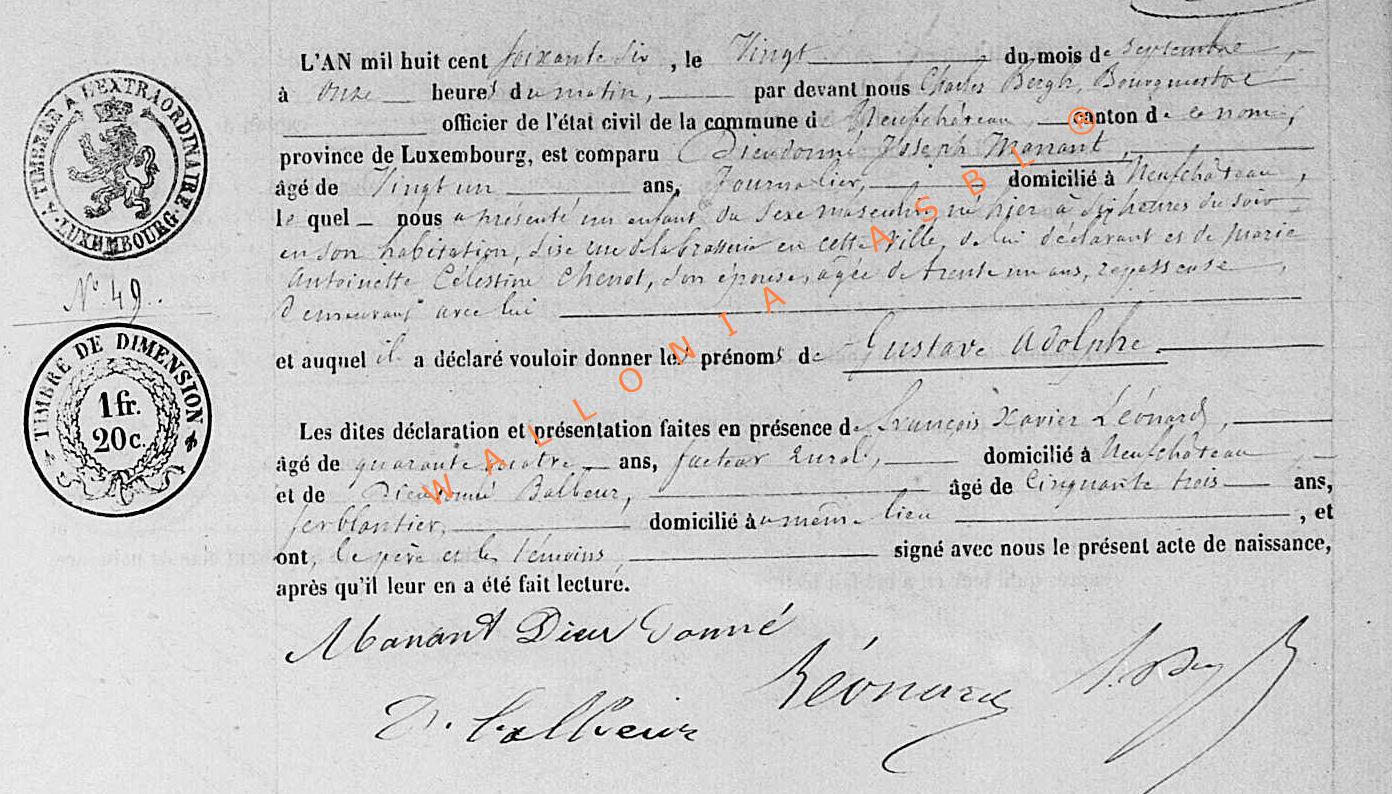 L'AN mil huit cent soixante six, le Vingt du mois de septembre,
à onze heures du matin, par devant nous Charles Bergh, Bourgmestre
officier de l'état civil de la commune de Neufchâteau, canton de ce nom,
province de Luxembourg, est comparu Dieudonné Joseph Manant,
âgé de Vingt un ans, Journalier, domicilié à Neufchâteau,
lequel nous a présenté un enfant du sexe masculin, né hier à dix heures du soir
en son habitation, sise rue de la brasserie en cette ville, de lui déclarant et de Marie
Antoinette Célestine Chenot, son épouse, agée de trente un ans, repasseuse,
Demeurant avec lui
et auquel il a déclaré vouloir donner les prénoms de Gustave Adolphe.
Les dites déclaration et présentation faites en présence de François Xavier Léonard,
âgé de quarante quatre ans, facteur Rural, domicilié à Neufchâteau,
et de Dieudonné Balbeur, âgé de Cinquante trois ans,
ferblantier, domicilié au même lieu, et
ont, le père et les témoins, signé avec nous le présent acte de naissance,
après qu'il leur en a été fait lecture.
Manant Dieudonné
Léonard
D. Balbeur
TIMBRE A L'EXTRAORDINAIRE
LUXEMBOURG
No. 49.
TIMBRE DE DIMENSION
1 fr.
20 c.
WALLONIA ASBL ®